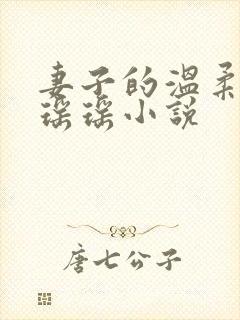 妻子的温柔
谣谣小说
唐七公子